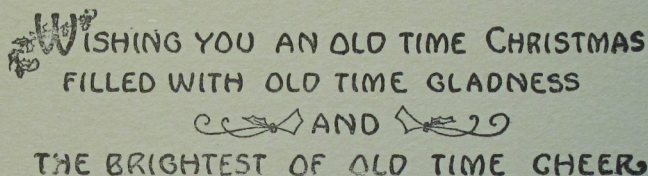 Wishing you an old time Christmas
filled with old time gladness
and
the brightest of old time cheer